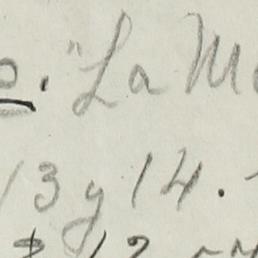 o. "La M
13 y 14.
$ 12